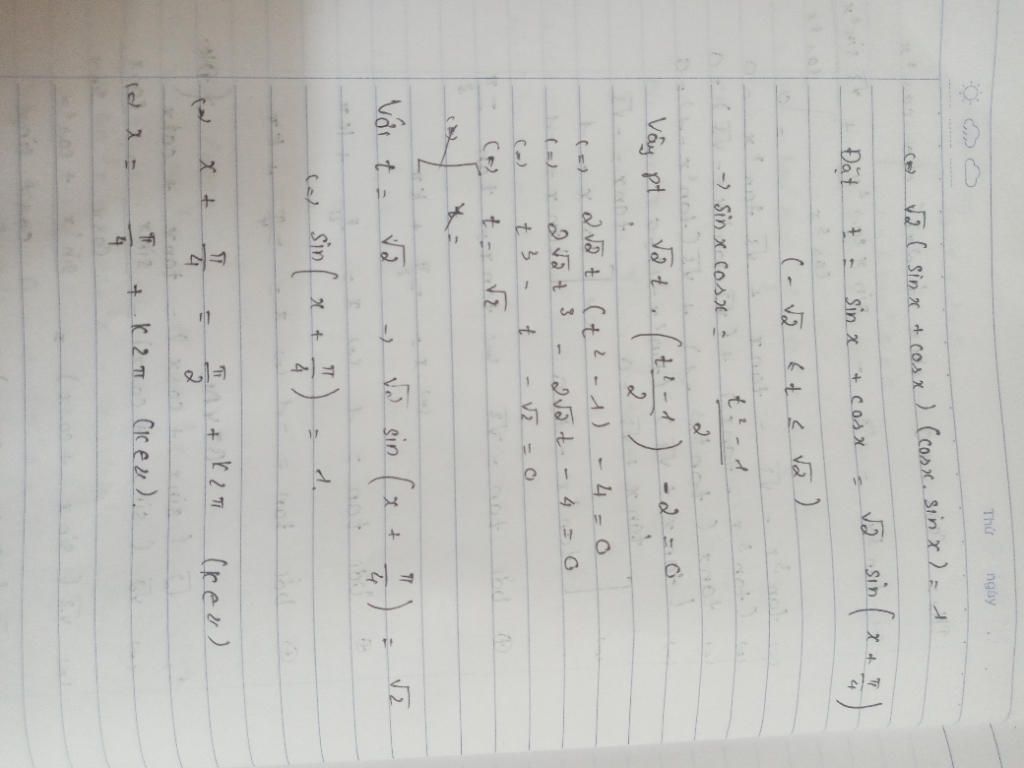 Thứ ngày
(=) √2 (sin x + cos x) (cos x . sin x) = 1
Đặt t = sin x + cos x = √2 sin(x + π/4)
(-√2 ≤ t ≤ √2)
→ sin x cos x = (t² - 1)/2
Vậy pt √2 t . ((t² - 1)/2) - 2 = 0
(=) 2√2 t (t² - 1) - 4 = 0
(=) 2√2 t³ - 2√2 t - 4 = 0
(=) t³ - t - √2 = 0
(=) t = √2
Với t = √2 → √2 sin(x + π/4) = √2
(=) sin(x + π/4) = 1.
(=) x + π/4 = π/2 + k2π (k ∈ Z)
(=) x = π/4 + k2π (k ∈ Z).